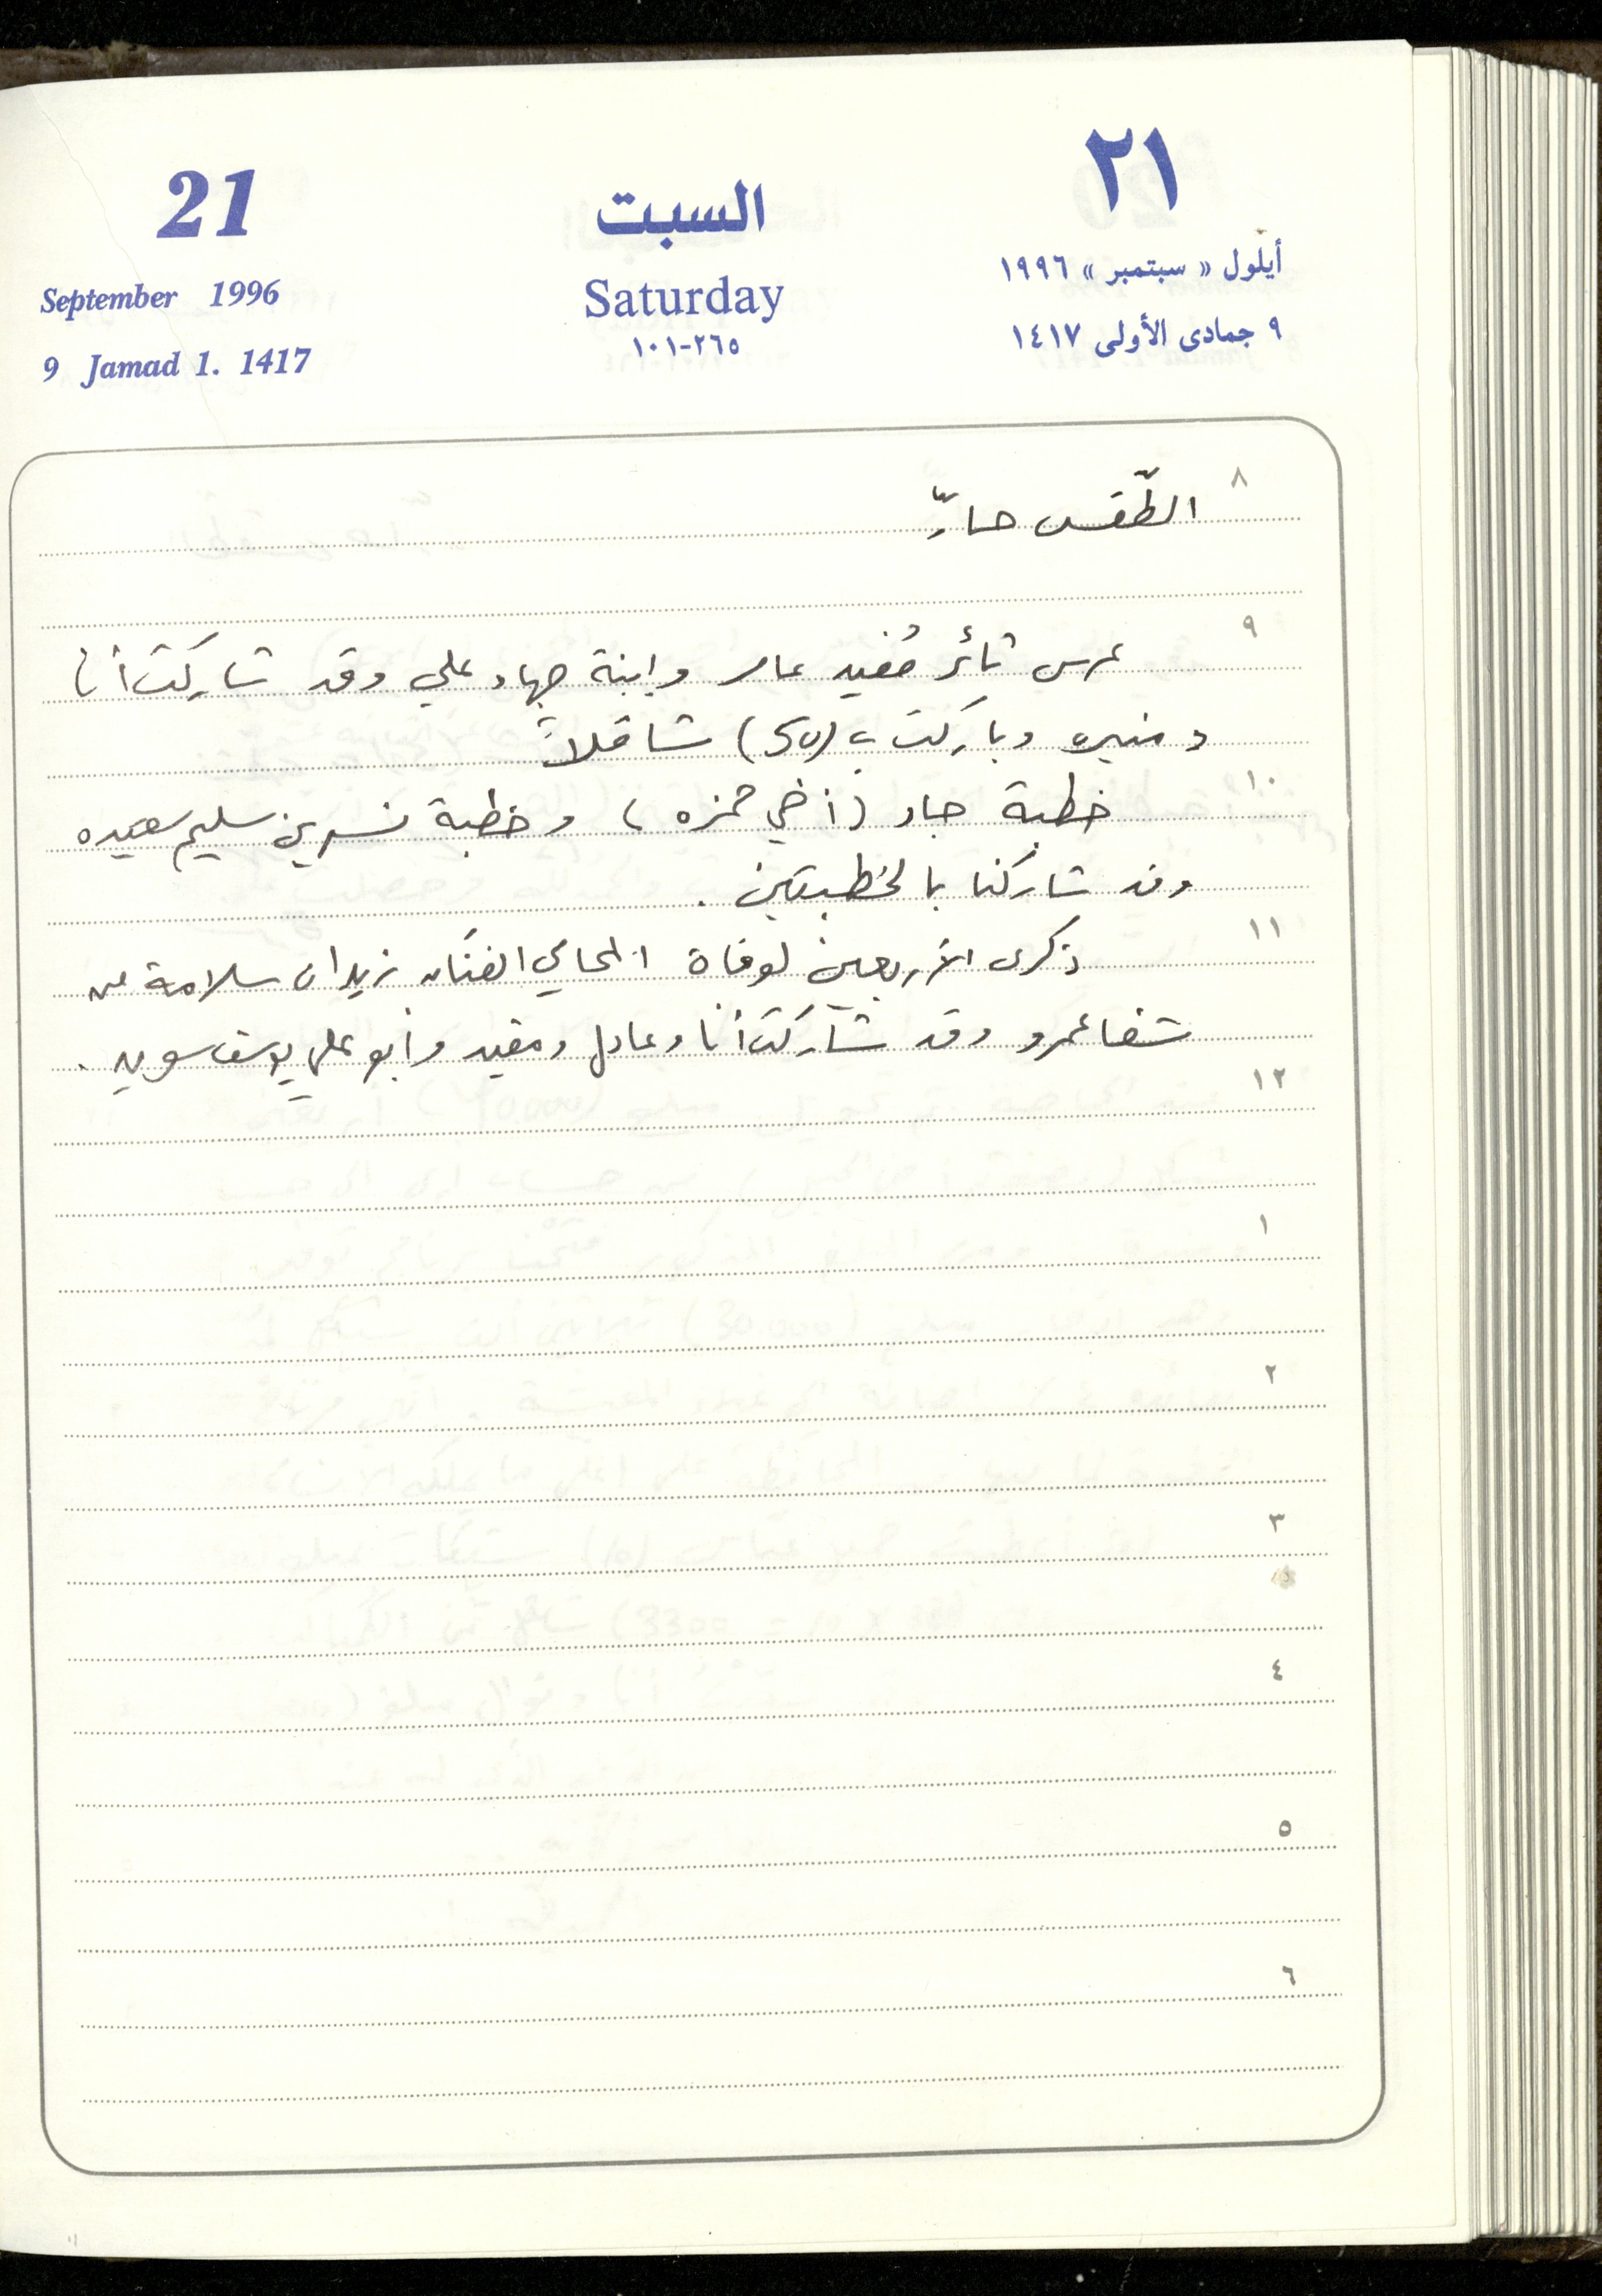 21
السبت
٢١
September 1996
Saturday
أيلول « سبتمبر » ١٩٩٦
9 Jamad 1. 1417
٢٦٥-١٠١
٩ جمادى الأولى ١٤١٧
٨
الطّقس حارّ
٩
عرس ثائر مُفيد عامر وابنة جهاد علي وقد شاركت أنا
ومنيره وباركت بـ (50) شاقلاً
١٠
خطبة جاد (أخي حمزه) وخطبة نسرين سليم سعيده
وقد شاركنا بالخطبتين .
١١
ذكرى الأربعين لوفاة المحامي الفنّان زيدان سلامة من
شفاعمرو وقد شاركت أنا وعادل ومفيد وأبو علي يوسف سويد .
١٢
١
٢
٣
٤
٥
٦